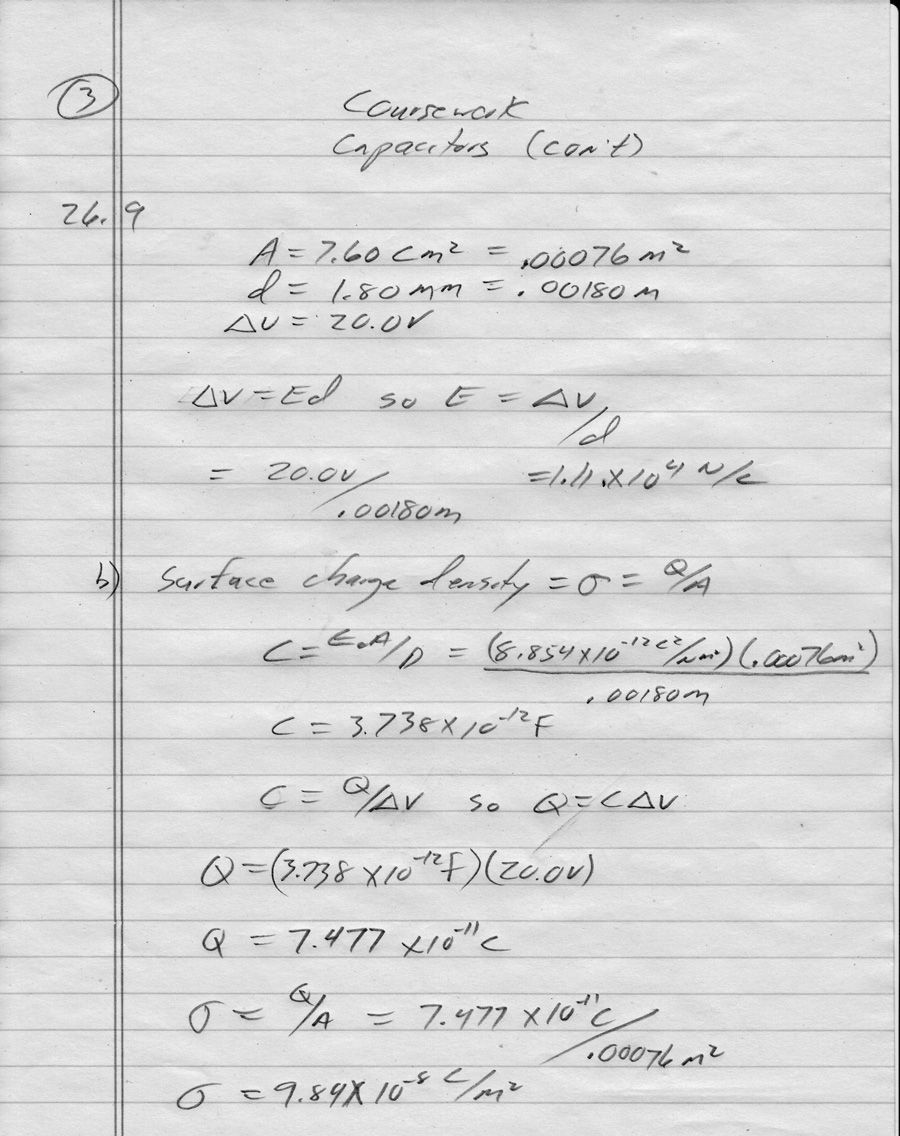 ③ Coursework
Capacitors (con't)
26.9
A = 7.60 cm² = .00076 m²
d = 1.80 mm = .00180 m
ΔV = 20.0V
ΔV = Ed so E = ΔV/d
= 20.0V/.00180m = 1.11 x 10⁴ N/C
b) Surface charge density = σ = Q/A
C = ε₀A/D = (8.854 x 10⁻¹² C²/Nm²)(.00076m²)
.00180m
C = 3.738 x 10⁻¹² F
C = Q/ΔV so Q = CΔV
Q = (3.738 x 10⁻¹² F)(20.0V)
Q = 7.477 x 10⁻¹¹ C
σ = Q/A = 7.477 x 10⁻¹¹ C/.00076 m²
σ = 9.84 X 10⁻⁸ C/m²